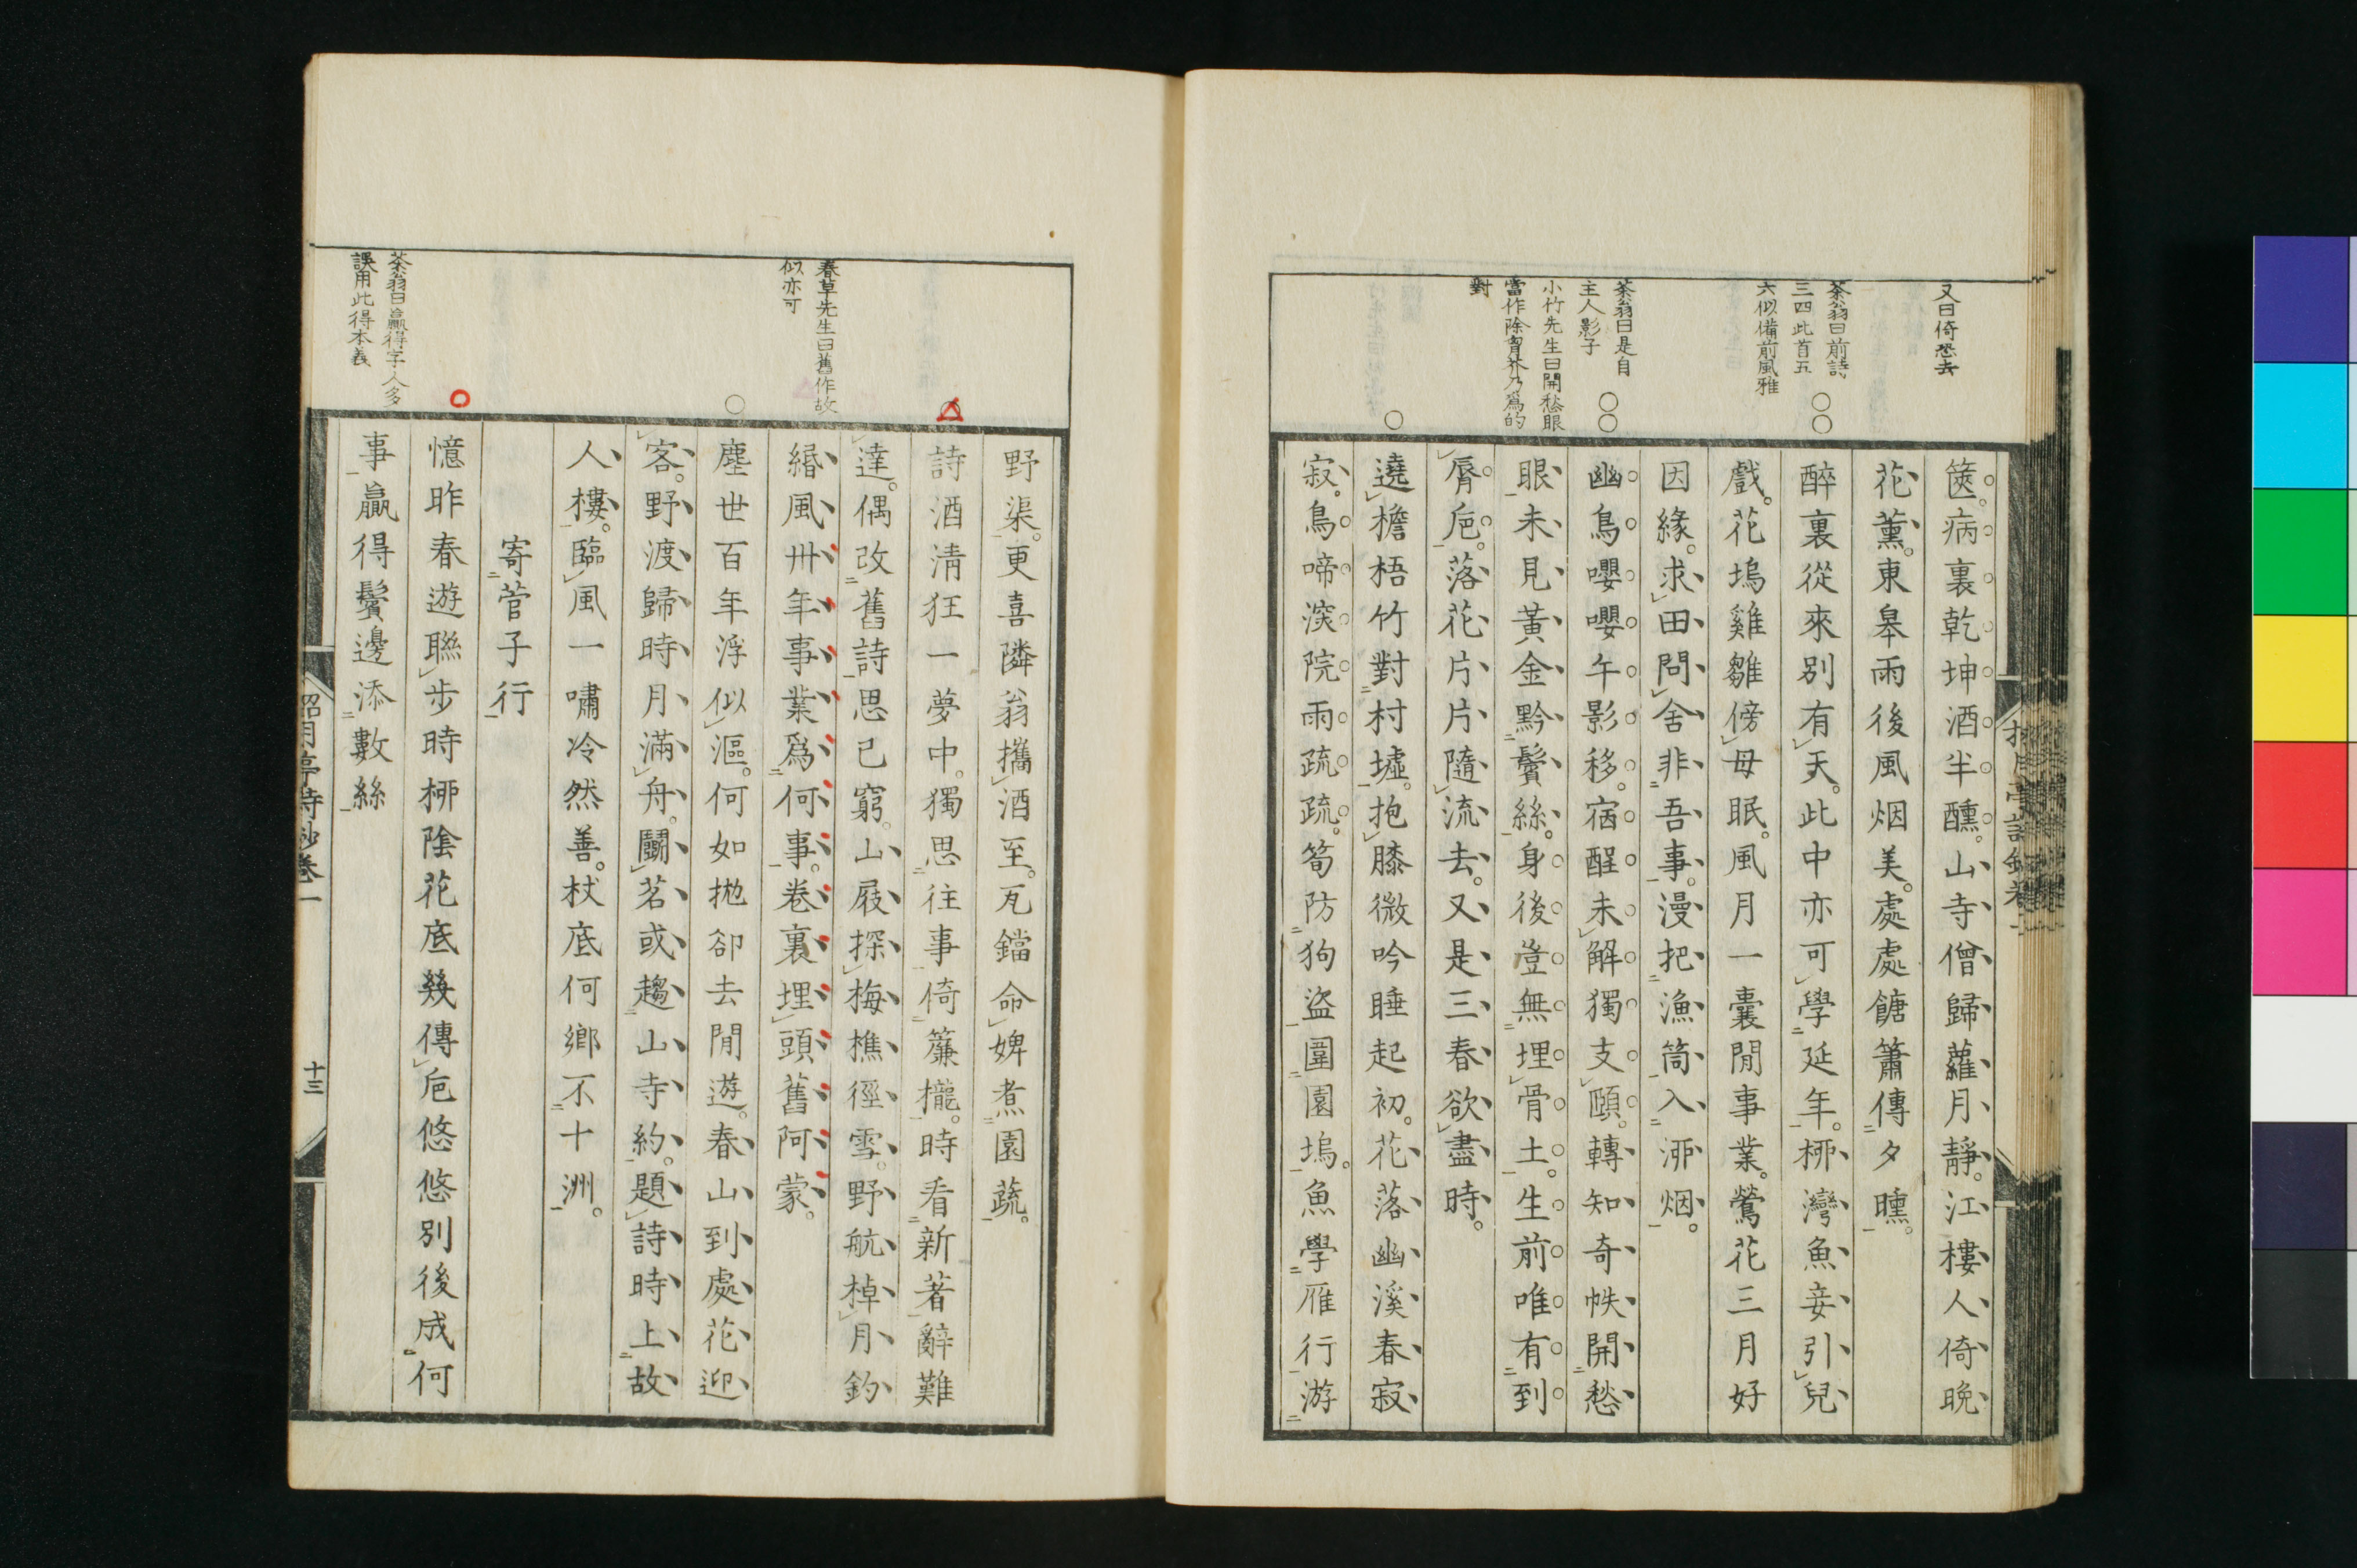 又曰倚恐去
茶翁曰前詩
三四此首五
六似備前風雅
茶翁曰是自
主人影子
小竹先生曰開愁眼
當作除胷芥乃爲的
對
篋。病裏乾坤酒半醺。山寺僧歸蘿月靜。江樓人倚晩
花薰。東皋雨後風烟美。處處餹簫傳夕曛。
醉裏從來別有天。此中亦可學延年。栁灣魚妾引兒
戲。花塢雞雛傍母眠。風月一囊閒事業。鶯花三月好
因緣。求田問舍非吾事。漫把漁筒入浉烟。
幽鳥嚶嚶午影移。宿酲未解獨支頤。轉知奇帙開愁
眼未見黃金黔鬢絲。身後豈無埋骨土。生前唯有到
脣巵。落花片片隨流去。又是三春欲盡時。
遶檐梧竹對村墟。抱膝微吟睡起初。花落幽溪春寂
寂。鳥啼深院雨疏疏。筍防狗盜圍園塢。魚學雁行游
春草先生曰舊作故
似亦可
茶翁曰贏得字人多
誤用此得本義
野渠。更喜隣翁攜酒至。瓦鐺命婢煮園蔬。
詩酒淸狂一夢中。獨思往事倚簾櫳。時看新著辭難
達。偶改舊詩思已窮。山屐探梅樵徑雪。野航棹月釣
緡風。卅年事業爲何事。卷裏埋頭舊阿蒙。
塵世百年浮似漚。何如拋卻去閒遊。春山到處花迎
客。野渡歸時月滿舟。鬬茗或趨山寺約。題詩時上故
人樓。臨風一嘯冷然善。杖底何鄉不十洲。
寄菅子行
憶昨春遊聯步時栁陰花底幾傳巵悠悠別後成何
事贏得鬢邊添數絲
十三